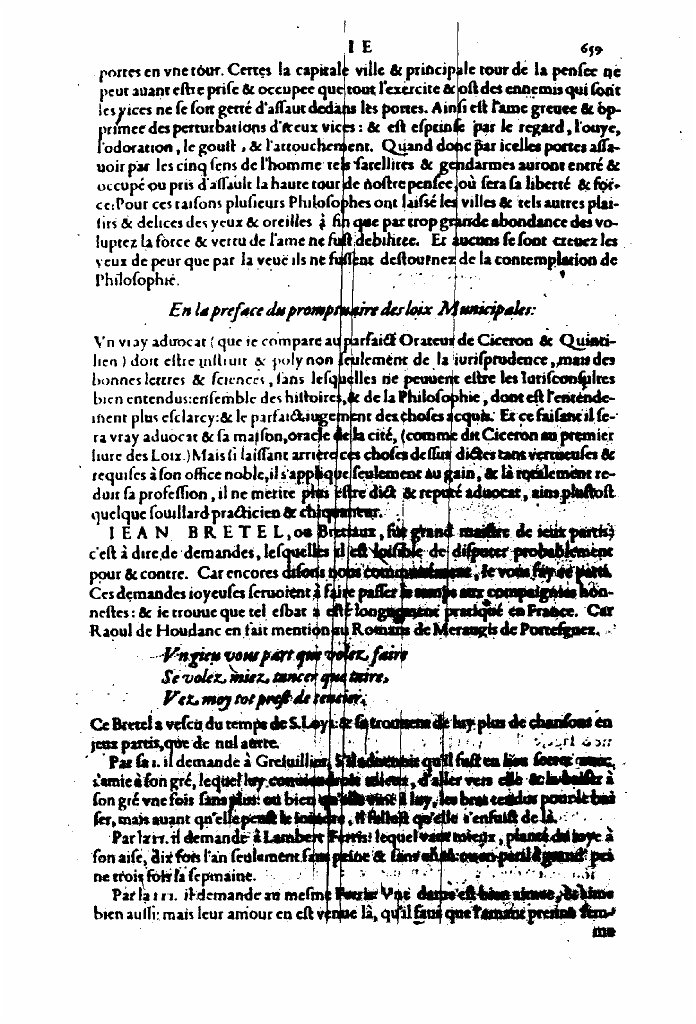 I E 659
portes en vne tour. Certes la capitale ville & principale tour de la pensee ne
peut auant estre prise & occupee que tout l'exercite & ost des ennemis qui sont
les vices ne se soit getté d'assaut dedans les portes. Ainsi est l'ame greuee & op-
primee des perturbations d'iceux vices : & est esprinse par le regard, l'ouye,
l'odoration, le goust, & l'attouchement. Quand donc par icelles portes assa-
uoir par les cinq sens de l'homme tels satellites & gendarmes auront entré &
occupé ou pris d'assault la haute tour de nostre pensee, où sera sa liberté & for-
ce: Pour ces raisons plusieurs Philosophes ont laissé les villes & tels autres plai-
sirs & delices des yeux & oreilles à fin que par trop grande abondance des vo-
luptez la force & vertu de l'ame ne fust debilitee. Et aucuns se sont creuez les
yeux de peur que par la veuë ils ne fussent destournez de la contemplation de
Philosophie.
En la preface du promptuaire des loix Municipales:
Vn vray aduocat ( que ie compare au parfaict Orateur de Ciceron & Quinti-
lien ) doit estre instruit & poly non seulement de la iurisprudence, mais des
bonnes lettres & sciences, sans lesquelles ne peuuent estre les Iurisconsultes
bien entendus: ensemble des histoires, & de la Philosophie, dont est l'entende-
ment plus esclarcy: & le parfaict iugement des choses acquis. Et ce faisant il se-
ra vray aduocat & sa maison, oracle de la cité, (comme dit Ciceron au premier
liure des Loix.) Mais si laissant arriere ces choses dessus dictes tant vertueuses &
requises à son office noble, il s'applique seulement au gain, & là totalement re-
duit sa profession, il ne merite plus estre dict & reputé aduocat, ains plustost
quelque souillard practicien & chiquaneur.
IEAN BRETEL, ou Bretiaux, fut grand maistre de ieux partis,
c'est à dire de demandes, lesquelles il est loisible de disputer probablement
pour & contre. Car encores disons nous communément, Ie vous fay ce parti.
Ces demandes ioyeuses seruoient à faire passer le temps aux compagnies hon-
nestes: & ie trouue que tel esbat a esté longuement pratiqué en France. Car
Raoul de Houdanc en fait mention au Romans de Meraugis de Portesguez.
Vn gieu vous part que volez faire
Se volez miez tancer que taire,
Vez moy tot prest de tencier.
Ce Bretel a vescu du temps de S. Loys: & se trouuent de luy plus de chansons en
jeux partis, que de nul autre.
Par sa I. il demande à Greiuillier, S'il qu'il fust en lieu
s'amie à son gré, lequel luy mieux, d'aller vers elle & la baiser à
son gré vne fois sans plus: ou bien qu'elle vinst à luy, les bras tendus pour le bai
ser, mais auant qu'elle peust le , il fallust qu'elle s'enfuist de là.
Par la II. il demande à Lambert Ferris: lequel vaut mieux, planté du ioye à
son aise, dix fois l'an seulement sans peine & sans grand pei
ne trois fois la sepmaine.
Par la III. il demande au mesme Ferris Vne dame est bien aimee, & aime
bien aussi: mais leur amour en est venue là, qu'il faut que l'amant prenne fem-
me